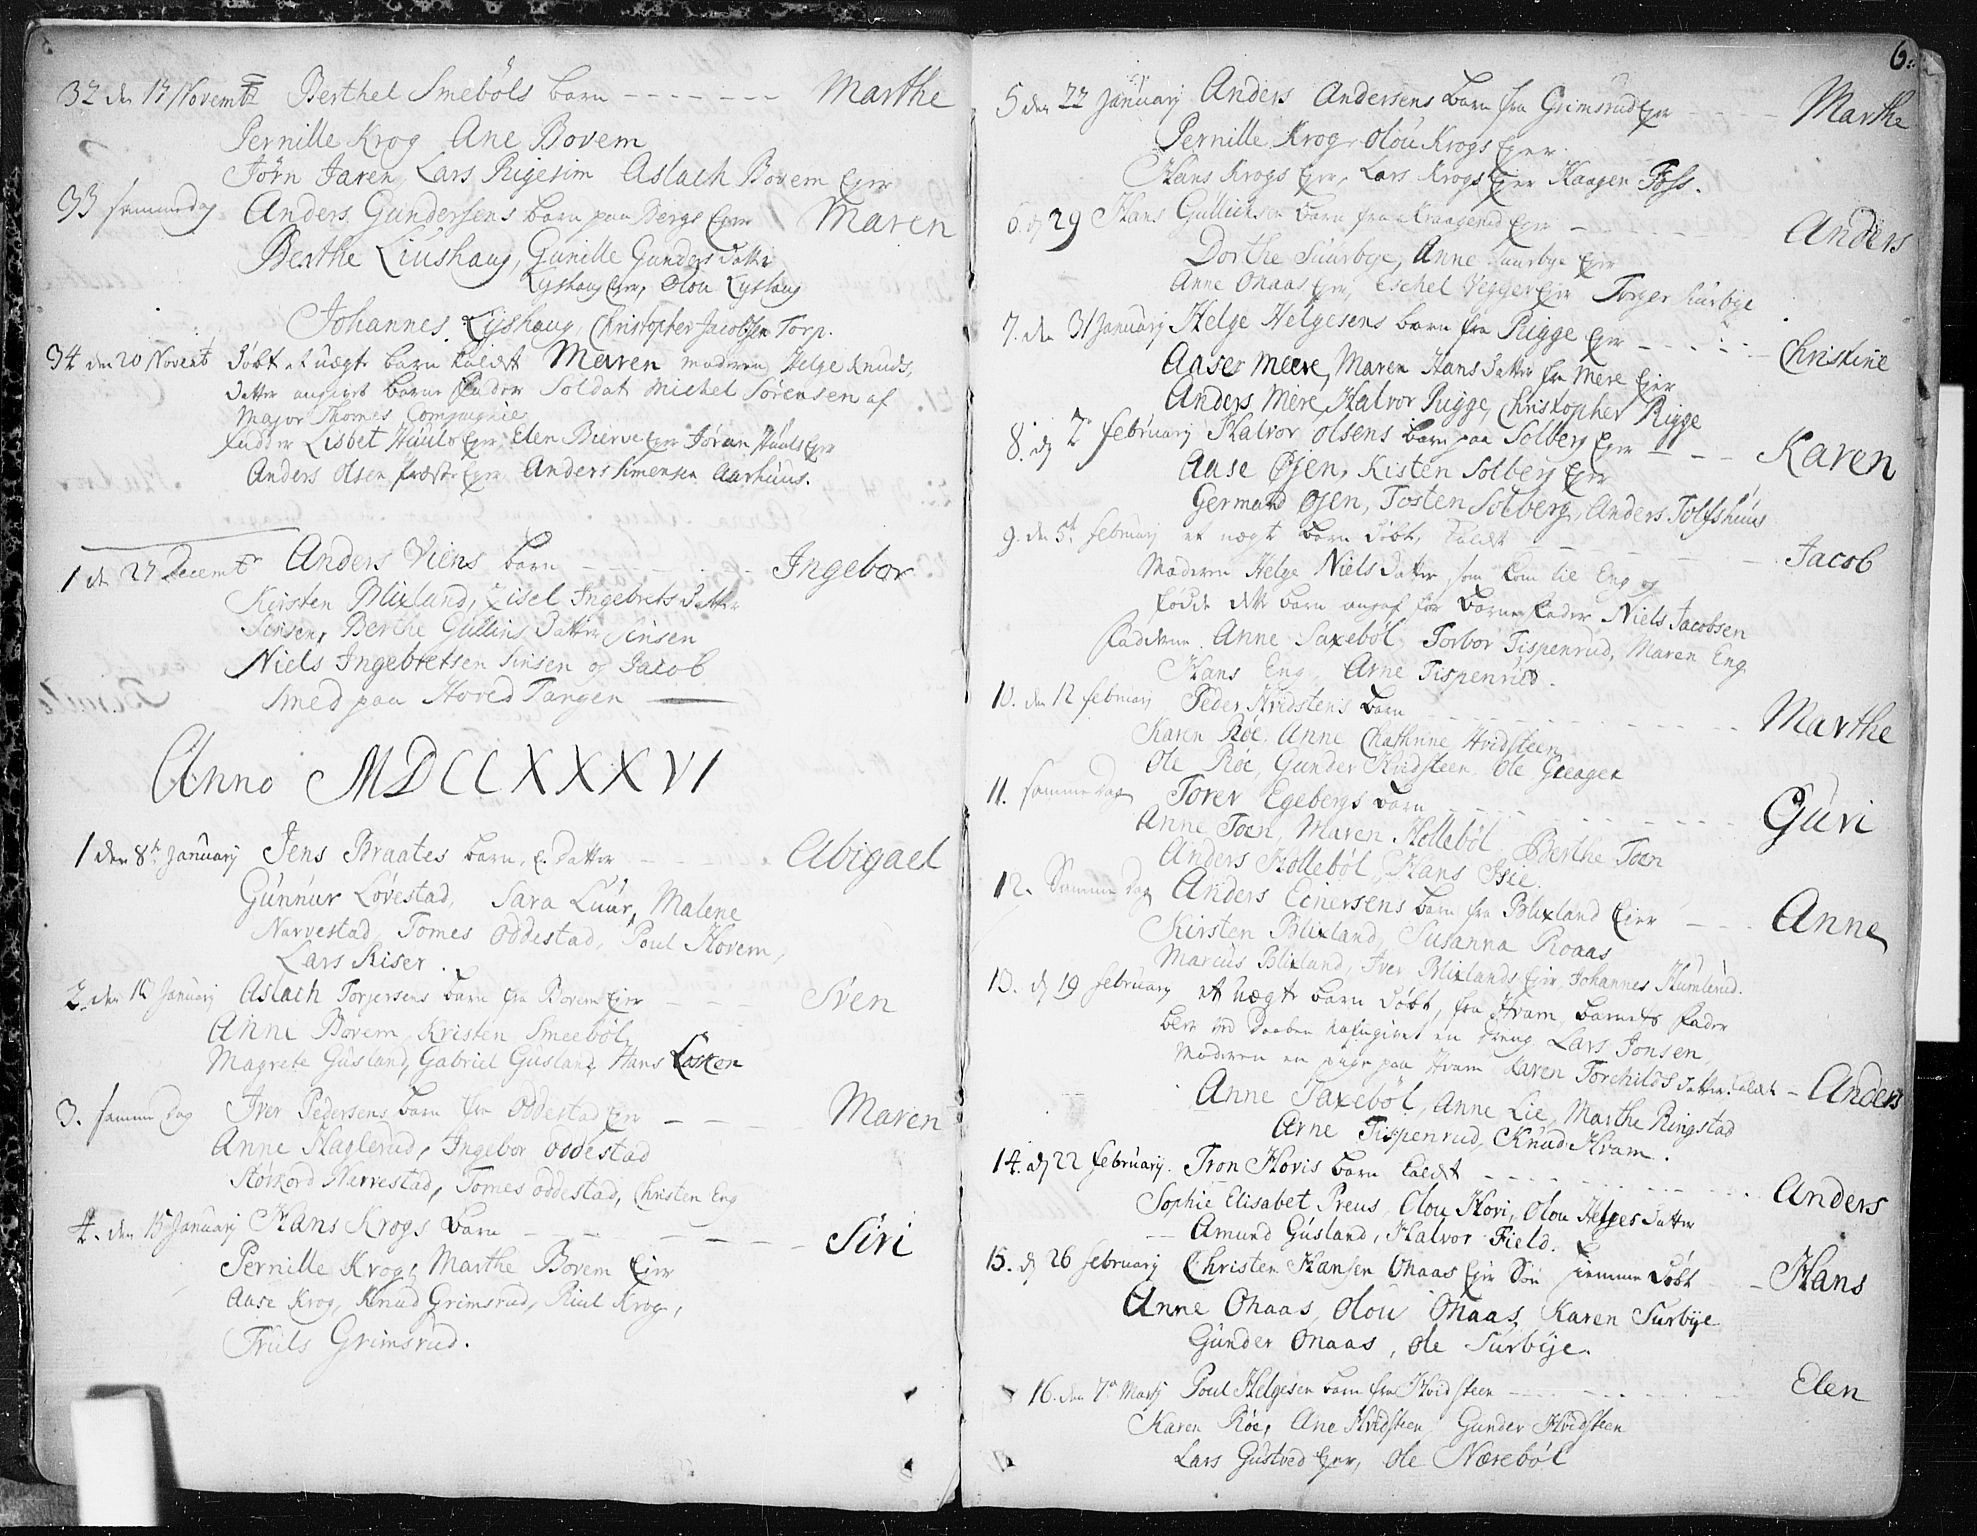 32 den 13 Novembr Berthel Smeböls barn - - - - - - - Marthe
Pernille Krog Ane Bovem
Jörn Jaren, Lars Rigesim Aslach Bovem Ejer
33 samme dag Anders Gundersens barn paa Bergs Ejer Maren
Berthe Liushaug, Gunille Gunders datter
Lyshaug Ejer, Olou Lyshaug
Johannes Lyshaug, Christopher Jacobsen Torp.
34 den 20 Novembr döbt et uægte barn kaldet Maren moderen Helge Knuds
datter angivet barne fader Soldat Michel Sörensen af
Major Thomes Compagnie
faddere Lisbet Huuls Ejer, Elen Bierve Ejer Jöran Huuls Ejer
Anders Olsen Præste Ejer Anders Simensen Aarhuus.
1 den 27 Decembr Anders Viens barn - - - - - - Ingebor
Kirsten Blixland, Zisel Ingebrets datter
Sinsen, Berthe Gullins datter Sinsen
Niels Ingebretsen Sinsen og Jacob
Smed paa Hoved Tangen
Anno MDCCXXXVI
1 den 8de January Jens Braates barn, e. datter - - - Abigael
Gunnur Lövestad, Sara Luur, Malene
Narvestad, Tomes Oddestad, Poul Hovem,
Lars Riser.
2. den January Aslach Torgersens barn fra Bovem Ejer - - - Sven
Anne Bovem, Kristen Smeeböl,
Magrete Gusland, Gabriel Gusland, Hans Losken
3. samme dag Iver Pedersens barn fra Oddestad Ejer - - - Maren
Anne Haglerud, Ingebor Oddestad
Störkord Nerrestad, Tomes Oddestad, Christen Eng
4. den 15 January Hans Krogs barn - - - - - - Siri
Pernille Krogs, Marthe Bovem Ejer
Aase Krog, Knud Grimsrud, Poul Krog,
Truls Grimsrud.
6.
5 den 22 January Anders Andersens barn fra Grimsrud Ejer - - - - Marthe
Pernille Krog, Olou Krogs Ejer.
Hans Krogs Ejer, Lars Krogs Ejer Haagen Foss.
6. d 29 Hans Gullichsen barn fra Kraagerud Ejer - - - - Anders
Dorthe Suurbye, Anne Suurbye Ejer
Anne Onaas Ejer, Eschel Vegger Ejer Torger Surbye
7. den 31 January Helge Helgesens barn fra Rigge Ejer - - - - - Christine
Aase Meere, Maren Hans datter fra Mere Ejer
Anders Mere, Halvor Rigge, Christopher Rigge
8. d 2 february Halvor Olsens barn paa Solberg Ejer - - - Karen
Aase Öjen, Kisten Solberg Ejer
Germand Öjen, Tosten Solberg, Anders Tolfshuus
9. den 5te february et uægte barn döbt, kaldet - - - - - - Jacob
Moderen Helge Niels datter som kom til Eng og
födde dette barn angaf for barne fader Niels Jacobsen
Fadderne Anne Saxeböl, Torbor Tispenrud, Maren Eng
Hans Eng, Arne Tispenrud.
10. den 12 february Peder Hvidstens barn - - - - - - - - Marthe
Karen Röe, Anne Chathrine Hvidsteen
Ole Röe, Gunder Hvidsteen, Ole Greager
11. samme dag Torer Egebergs barn - - - - - - - Guri
Anne Toen, Maren Holleböl, Berthe Toen
Anders Holleböl, Hans Isie.
12. Samme dag Anders Einersens barn fra Blixland Ejer - - - Anne
Kirsten Blixland, Susanna Roaas
Marcus Blixland, Iver Blixlands Ejer, Johannes Humlerud.
13. d 19 february et uægte barn döbt, fra Hvam, barnets fader
blev ved daaben nafngivet en dreng Lars Jonsen,
Moderen en pige paa Hvam Karen Torchilds datter. kaldet - Anders
Anne Saxeböl, Anne Lie, Marthe Ringstad
Arne Tispenrud, Knud Hvam.
14. d 22 february. Tron Hovis barn kaldet - - - - - - - Anders
Sophie Elisabet Preus, Olou Hovi, Olou Helges datter
Amund Gusland, Halvor Field.
15. d 26 february Christen Hansen Onaas Ejer Sön hiemme döbt - Hans
Anne Onaas, Olou Onaas, Karen Surbye
Gunder Onaas, Ole Surbye.
16. den 7de Marti Poul Helgesen barn fra Hvidsteen - - - - - - Elen
Karen Röe, Ane Hvidsteen, Gunder Hvidsteen
Lars Gustved Ejer, Ole Næreböl